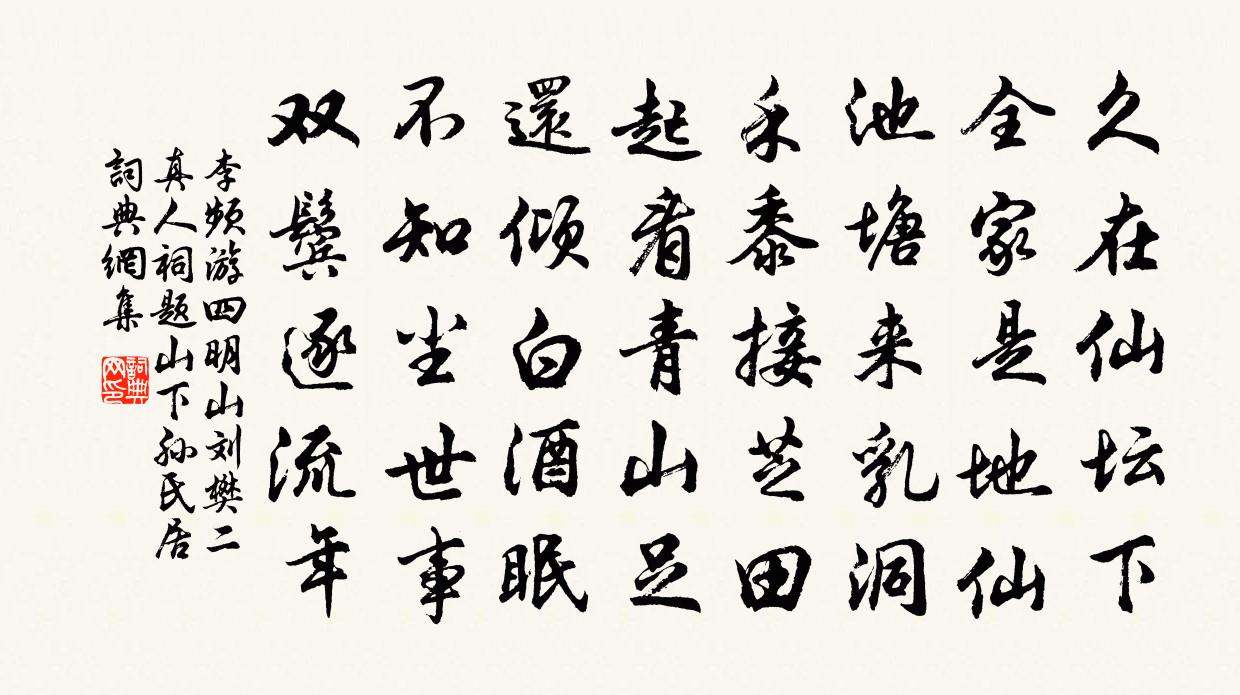 久在仙坛下
全家是地仙
池塘来乳洞
禾黍接芝田
起看青山足
還倾白酒眠
不知尘世事
双鬓逐流年
李频游四明山刘樊二
真人祠题山下孙氏居
詞典網集
詞典网印